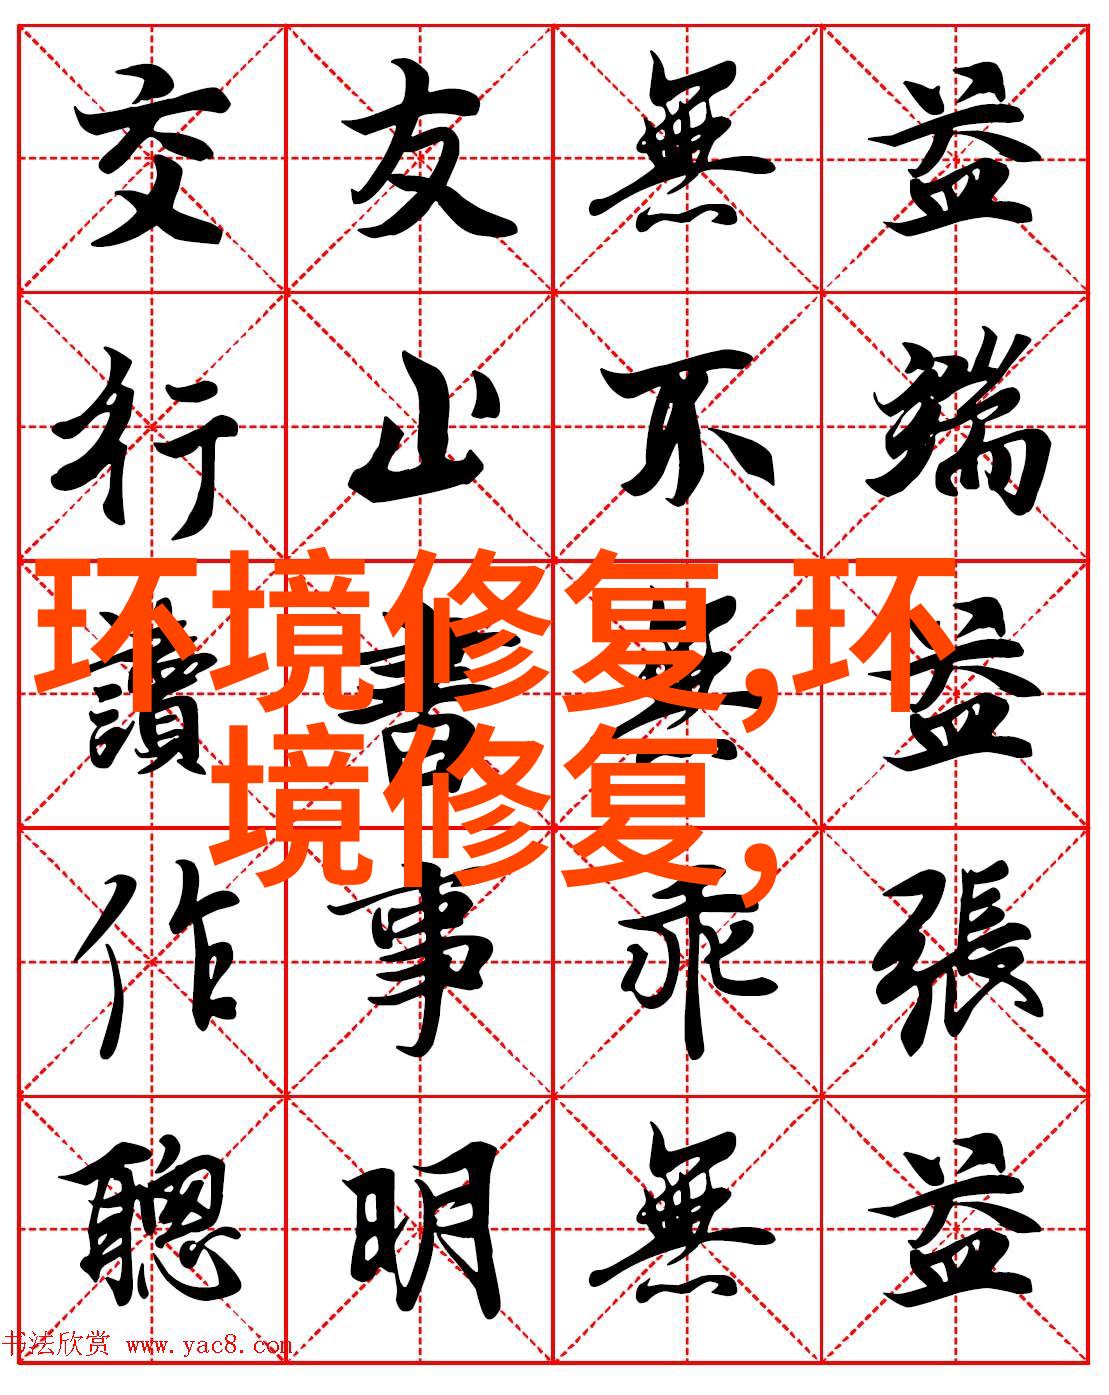 交友無益
行止不端
環境修复,环
境修复,
讀書無益
作事乖張
聰明無益
书法欣赏 www.yac8.com